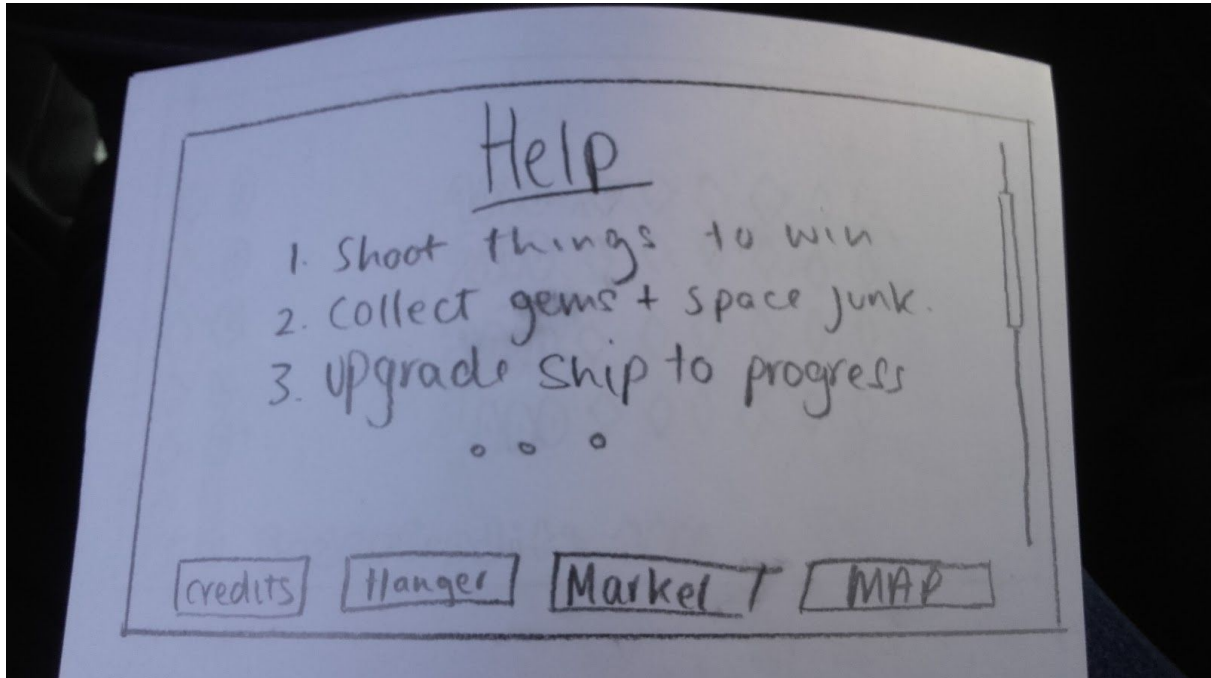 Help
1. Shoot things to win
2. Collect gems + space junk.
3. Upgrade ship to progress
. . .
Credits Hanger Market MAP